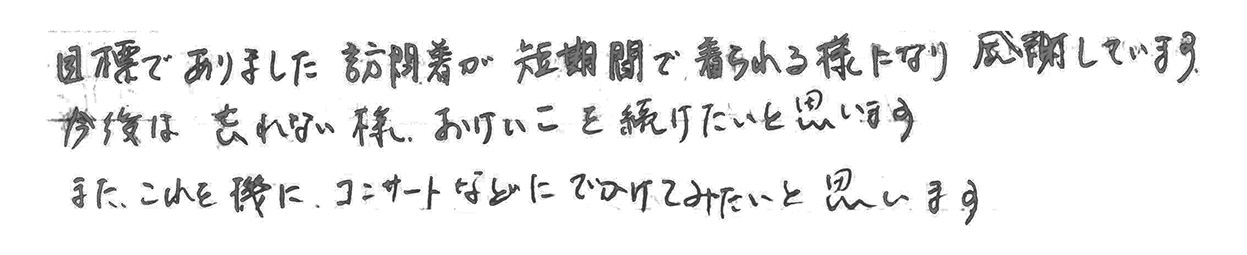 目標でありました 訪問着が 短期間で 着られる様になり 感謝しています。
今後は 忘れない様、おけいこを続けたいと思います
また、これを機に、コンサートなどにでかけてみたいと思います